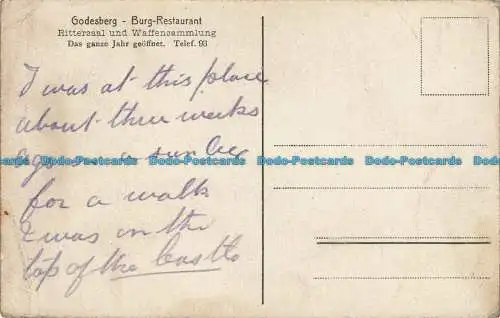 Godesberg - Burg-Restaurant
Rittersaal und Waffensammlung
Das ganze Jahr geöffnet. Telef. 93
I was at this place
about three weeks
ago on a
for a walk
I was on the
top of the Castle
Dodo-Postcards Dodo-Postcards Dodo-Postcards Dodo-Postcards